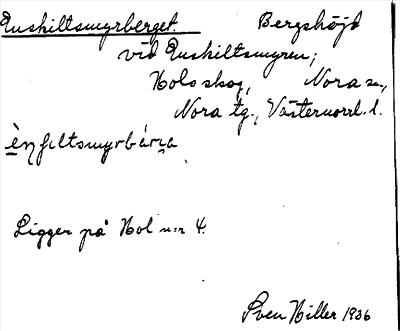 Enskiltsmyrberget. Bergshöjd
vid Enskiltsmyren;
Hols skog, Nora sn,
Nora tg., Västernorrl. l.
Ligger på Hol n:r 4.
Sven Hiller 1936